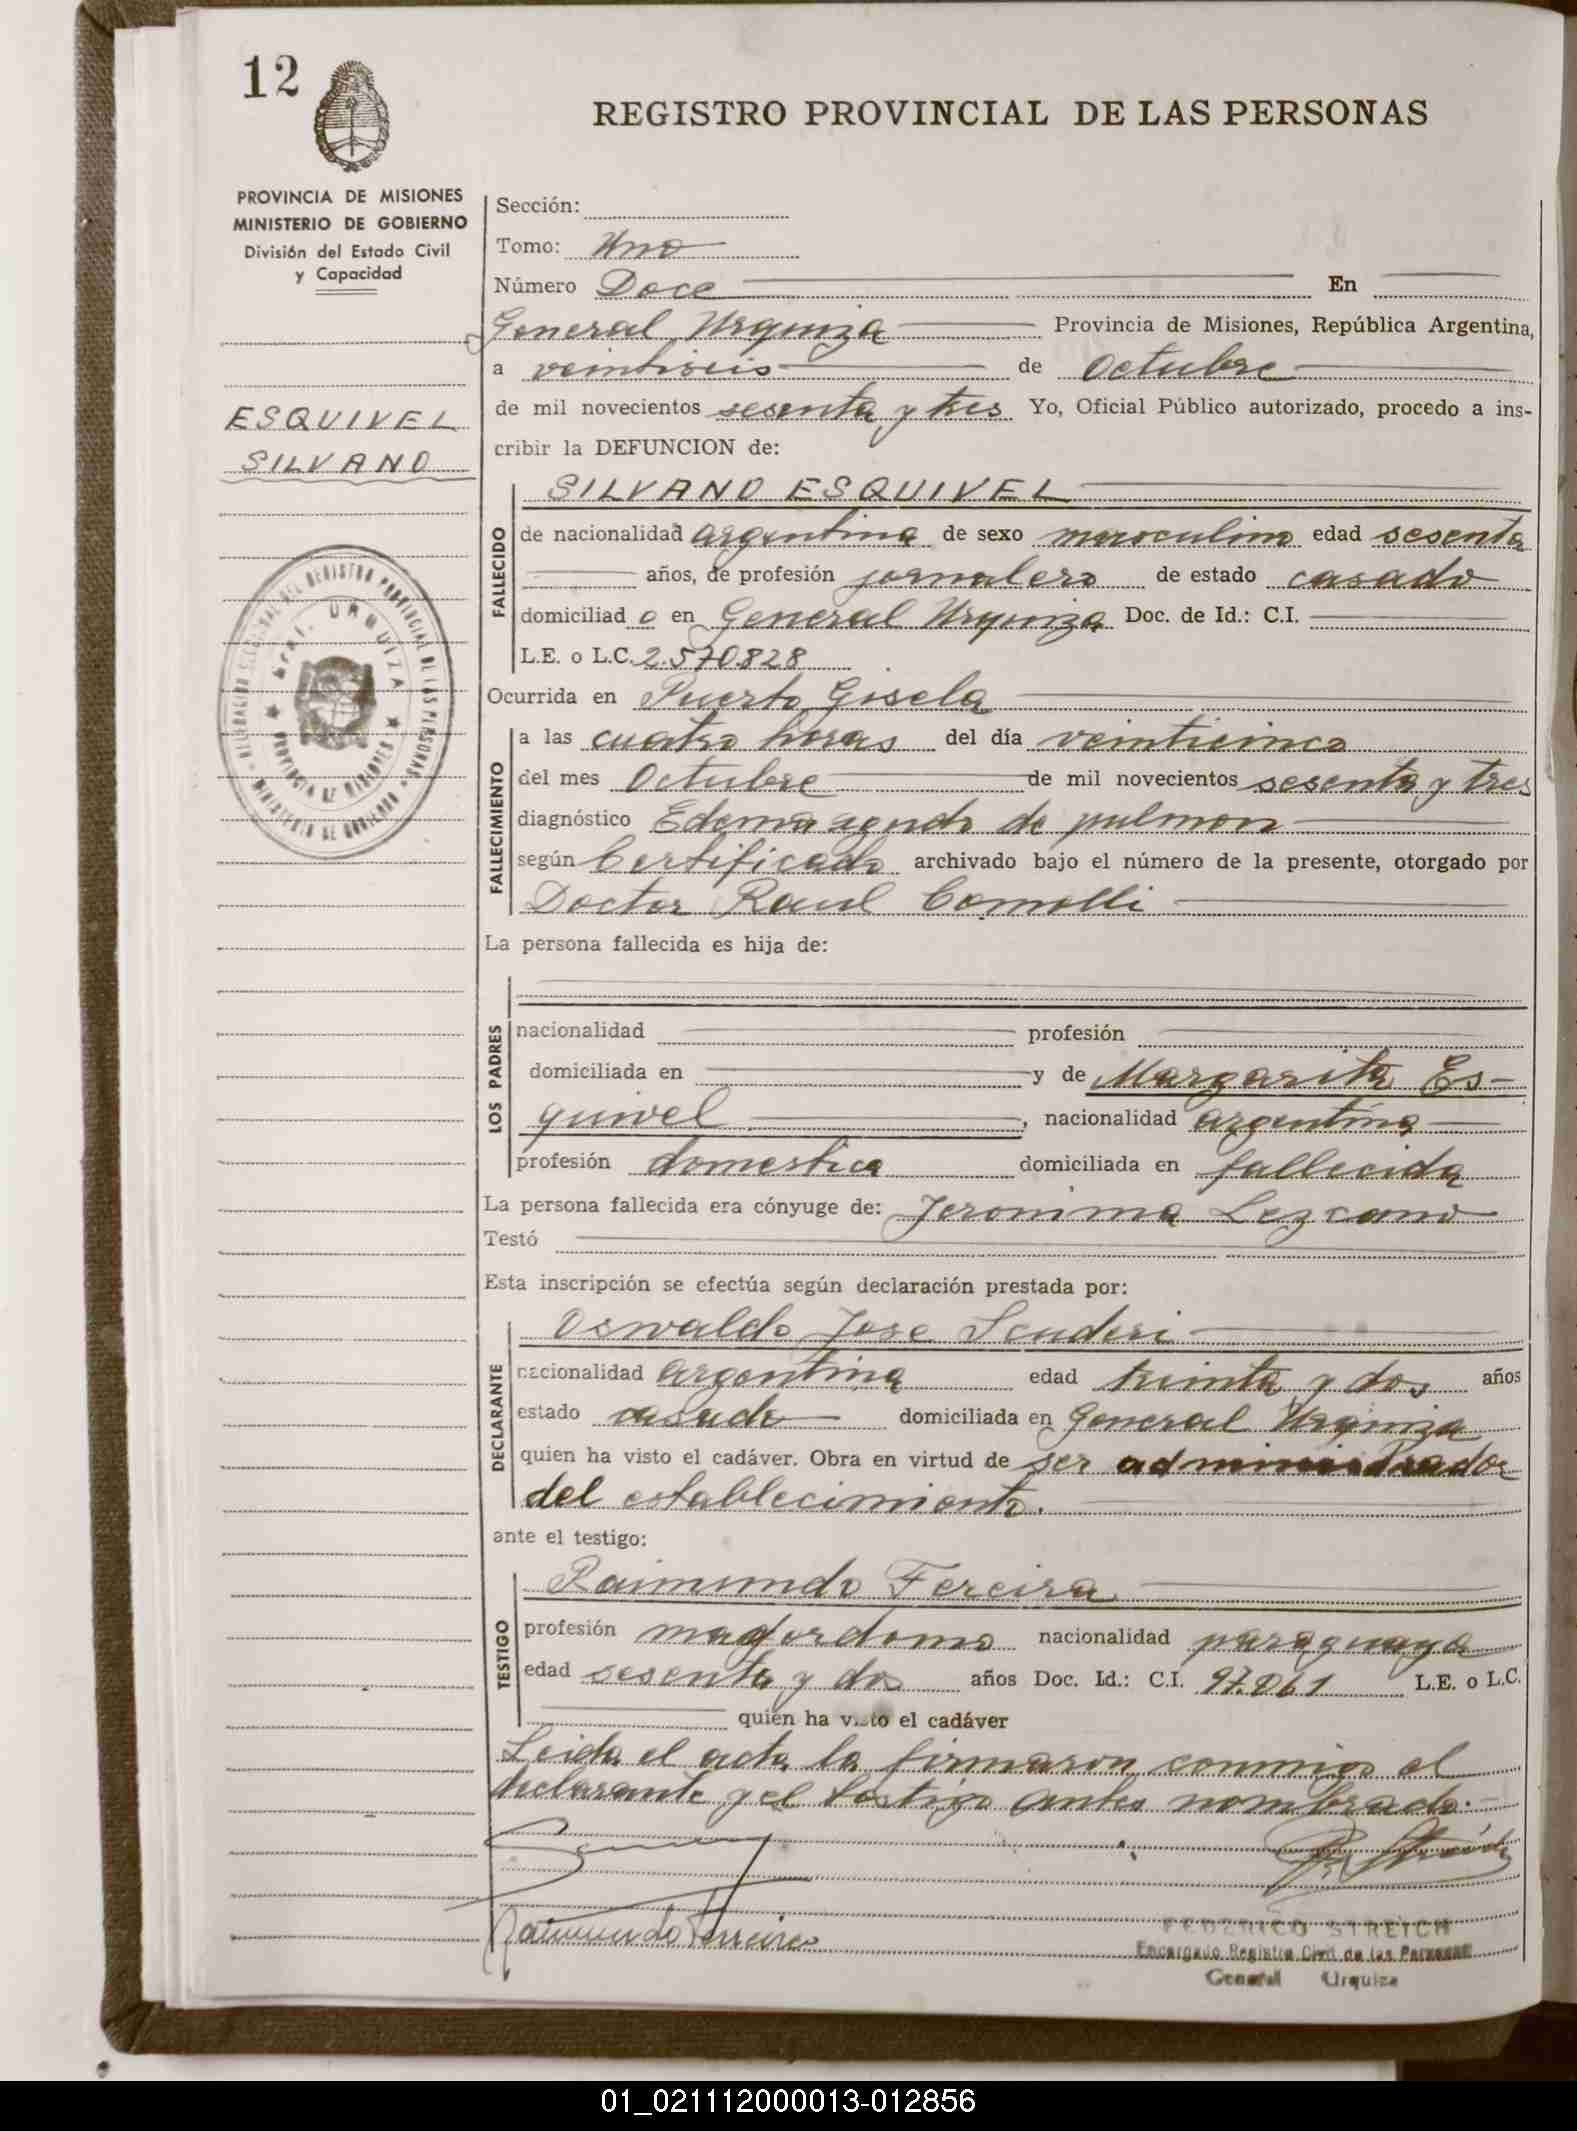 12
REGISTRO PROVINCIAL DE LAS PERSONAS
PROVINCIA DE MISIONES
MINISTERIO DE GOBIERNO
División del Estado Civil
y Capacidad
ESQUIVEL
SILVANO
Sección:
Tomo: Uno
Número Doce En
General Urquiza Provincia de Misiones, República Argentina,
a veintiseis de Octubre
de mil novecientos sesenta y tres Yo, Oficial Público autorizado, procedo a ins-
cribir la DEFUNCION de:
SILVANO ESQUIVEL
FALLECIDO
de nacionalidad argentina de sexo masculino edad sesenta
años, de profesión jornalero de estado casado
domiciliad o en General Urquiza Doc. de Id.: C.I.
L.E. o L.C. 2.570.828
Ocurrida en Puerto Gisela
FALLECIMIENTO
a las cuatro horas del día veinticinco
del mes Octubre de mil novecientos sesenta y tres
diagnóstico Edema agudo de pulmon
según Certificado archivado bajo el número de la presente, otorgado por
Doctor Raul Comolli
La persona fallecida es hija de:
LOS PADRES
nacionalidad profesión
domiciliada en y de Margarita Es-
quivel, nacionalidad argentina
profesión domestica domiciliada en fallecida
La persona fallecida era cónyuge de: Jeronima Lezcano
Testó
Esta inscripción se efectúa según declaración prestada por:
Oswaldo Jose Scuderi
DECLARANTE
nacionalidad argentina edad treinta y dos años
estado casado domiciliada en General Urquiza
quien ha visto el cadáver. Obra en virtud de ser administrador
del establecimiento.
ante el testigo:
Raimundo Fereira
TESTIGO
profesión mayordomo nacionalidad paraguaya
edad sesenta y dos años Doc. Id.: C.I. 97.061 L.E. o L.C.
quien ha visto el cadáver
Leida el acta la firmaron conmigo el
declarante y el testigo antes nombrado.-
Raimundo Ferreira
FEDERICO STREICH
Encargado Registro Civil de las Personas
General Urquiza
01_021112000013-012856